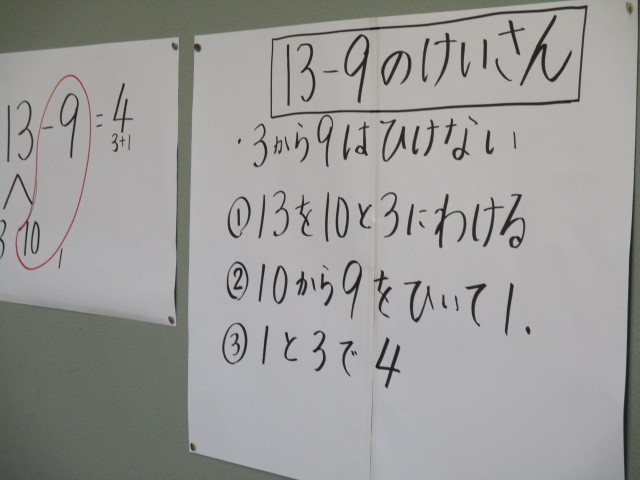 13-9=4
3+1
3 10
1
13-9のけいさん
・3から9はひけない
①13を10と3にわける
②10から9をひいて1.
③1と3で4